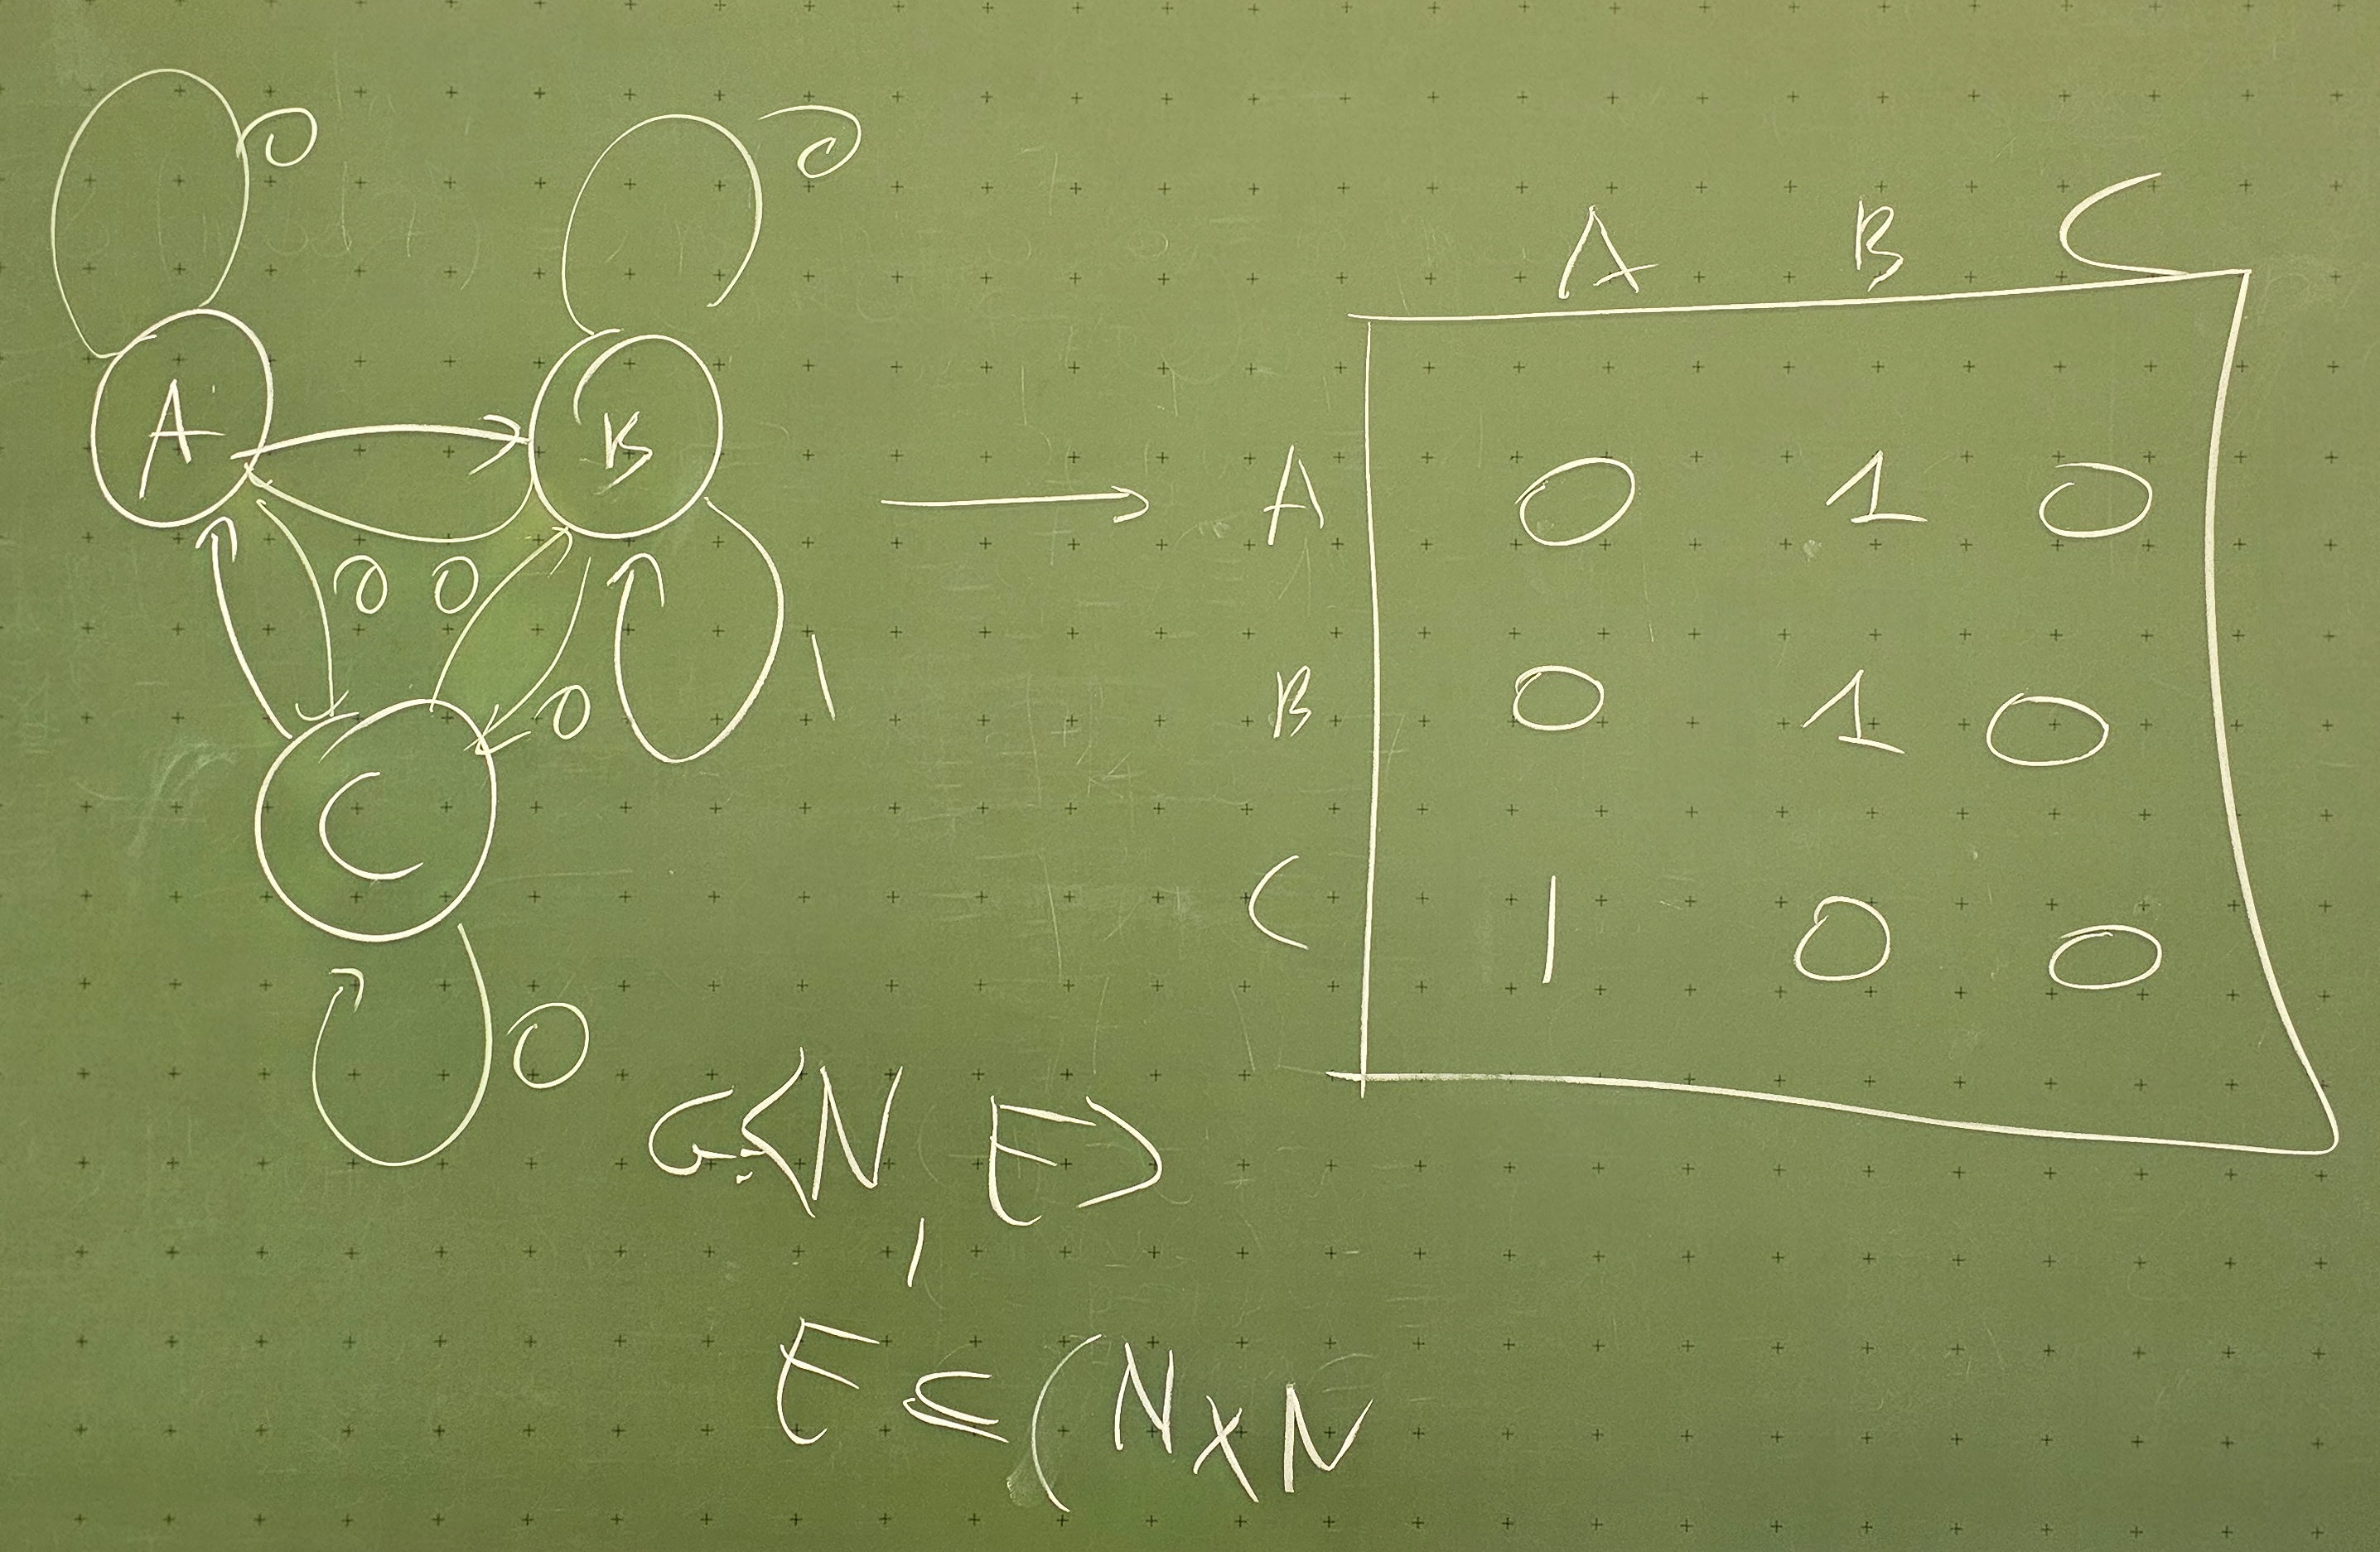 0 0
A B C
A B
A 0 1 0
0 0
1
0
B 0 1 0
C
C 1 0 0
0
G=<N, E>
E ⊆ (N×N